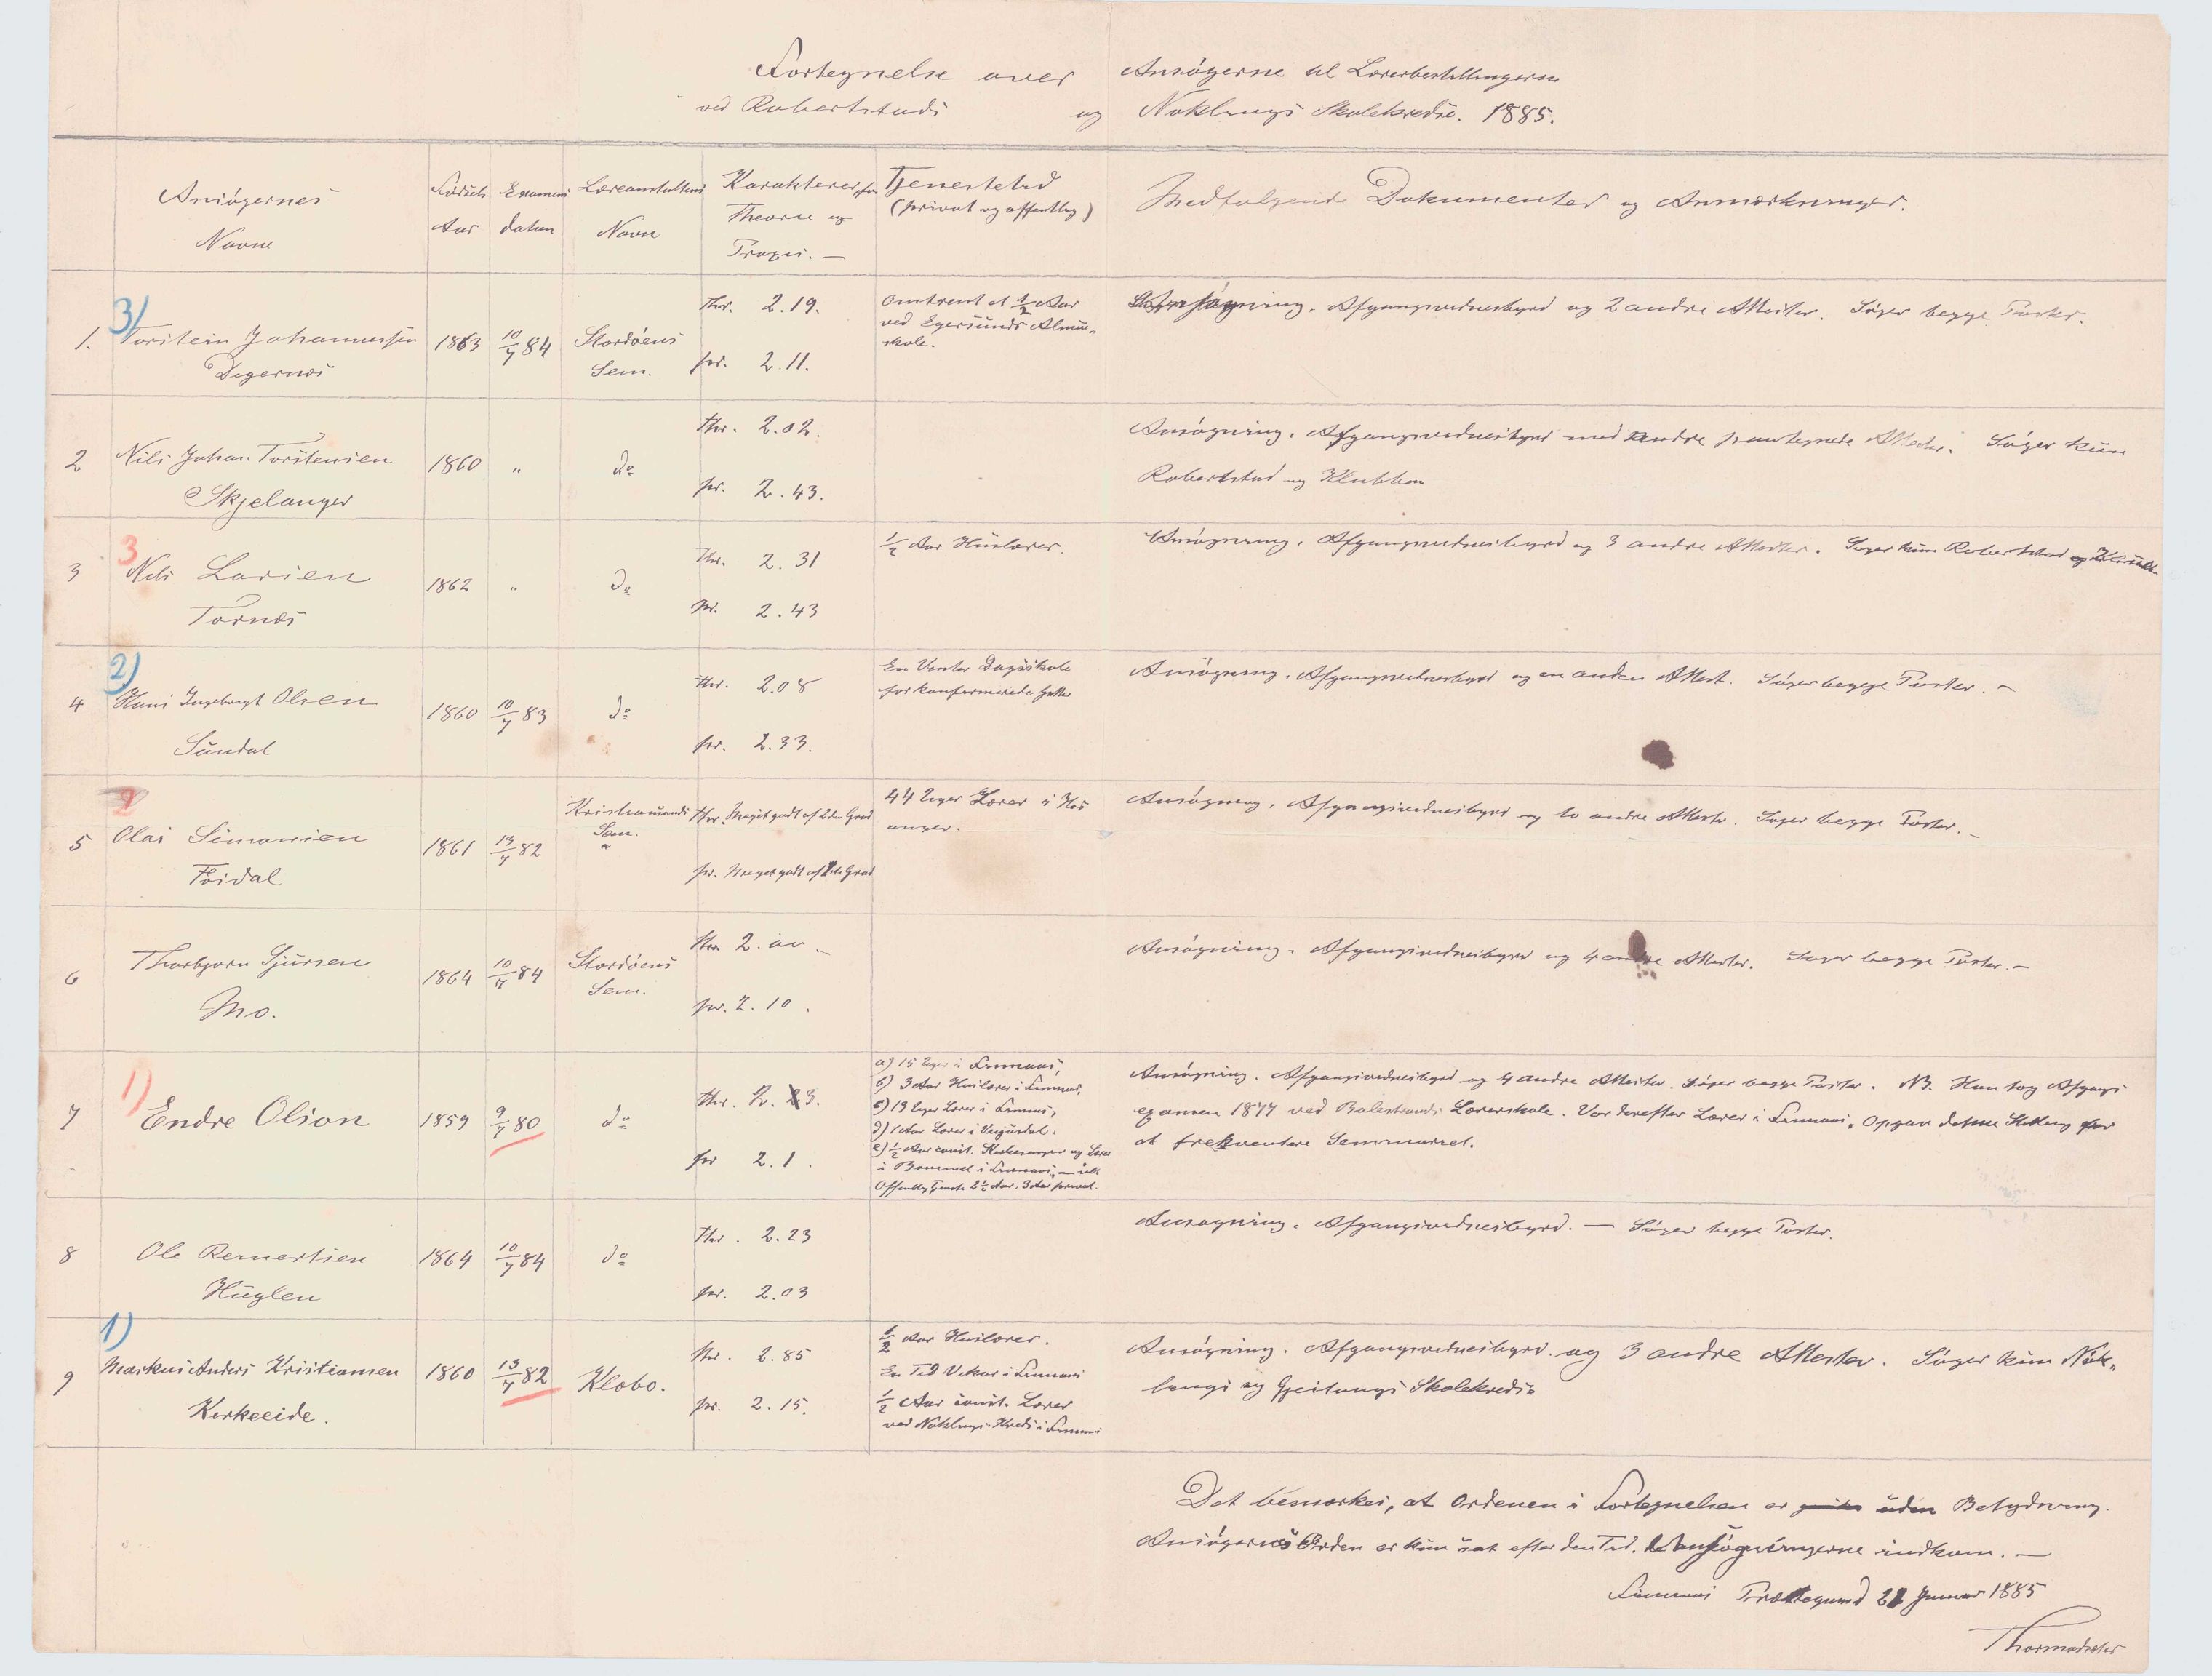 Fortegnelse over Ansøgerne til Lærerbestillingerne
ved Robertstads og Noklings Skolekredse. 1885.
Ansøgernes
Navne
Fødsels
Aar
Examens
datum
Læreanstaltens
Navn
Karakterer for
Theorie og
Praxis. —
Tjenestetid
(privat og offentlig)
Medfølgende Dokumenter og Anmærkninger.
3)
1. Torstein Johannessen
Degernæs
1863
10/7 84
Stordøens
Sem.
Thr. 2.19.
pr. 2.11.
Omtrent et 1/2 Aar
ved Egersunds Almue-
skole.
Ansøgning. Afgangsvidnesbyrd og 2 andre Attester. Søger begge Poster.
2 Nils Johan Torstensen
Skjelanger
1860
"
do
Thr. 2.02.
pr. 2.43.
Ansøgning. Afgangsvidnesbyrd med andre paategnede Attester. Søger kun
Robertstad og Klubben
3
3 Nils Larsen
Tornæs
1862
"
do
Thr. 2.31
pr. 2.43
1/2 Aar Huslærer.
Ansøgning. Afgangsvidnesbyrd og 3 andre Attester. Søger kun Robertstad og
2)
4 Hans Ingebrigt Olsen
Sundal
1860
10/7 83
do
Thr. 2.08
pr. 2.33.
En Vinter Dagskole
for konfirmerede Gutter
Ansøgning. Afgangsvidnesbyrd og en anden Attest. Søger begge Poster. —
2
5 Olai Simonsen
Foidal
1861
13/7 82
Kristiansands
Sem.
Thr. Meget godt af 2den Grad
pr. Meget godt af Grad
44 Uger Lærer i Hos
anger.
Ansøgning. Afgangsvidnesbyrd og to andre Attester. Søger begge Poster. —
6 Thorbjørn Sjursen
Mo.
1864
10/7 84
Stordøens
Sem.
Thr. 2.
pr. 2.10.
Ansøgning. Afgangsvidnesbyrd og 4 andre Attester. Søger begge Poster. —
1)
7 Endre Olson
1859
9/7 80
do
Thr. 2. 3.
pr 2.1.
a) 15 Uger i Finnaas,
b) 3 Aar Huslærer i Finnaas,
c) 13 Uger Lærer i Finnaas,
d) 1 Aar Lærer i
e) 1/2 Aar const. Kirkesanger og Lærer
i Bremnes i Finnaas, —
Offentlig Tjeneste 2 1/2 Aar. 3 Aar privat.
Ansøgning. Afgangsvidnesbyrd og 4 andre Attester. Søger begge Poster. NB. Han tog Afgangs
examen 1877 ved Balestrands Lærerskole. Var derefter Lærer i Finnaas. Opgav denne Stilling for
at frekventere Seminariet.
8 Ole Reinertsen
Huglen
1864
10/7 84
do
Thr. 2.23
pr. 2.03
Ansøgning. Afgangsvidnesbyrd. — Søger begge Poster.
1)
9 Markus Anders Kristiansen
Kirkeeide.
1860
13/7 82
Klobo.
Thr. 2.85
pr. 2.15.
1/2 Aar Huslærer.
En Tid Vikar i Finnaas
1/2 Aar const. Lærer
ved Noklings Kreds i Finnaas
Ansøgning. Afgangsvidnesbyrd. og 3 andre Attester. Søger kun Nok-
lings og Gjeitungs Skolekreds
Det bemærkes, at Ordenen i Fortegnelsen er uden Betydning.
Ansøgernes Orden er kun sat efter den Tid, Ansøgningerne indkom. —
Finnaas Præstegaard 21 Januar 1885